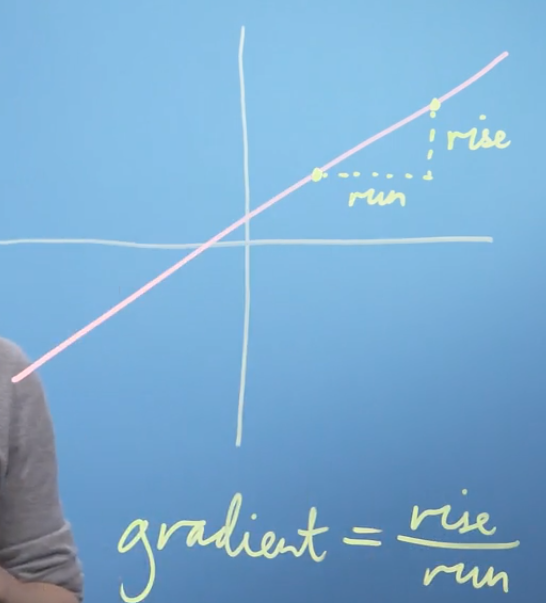 rise
run
gradient = rise/run